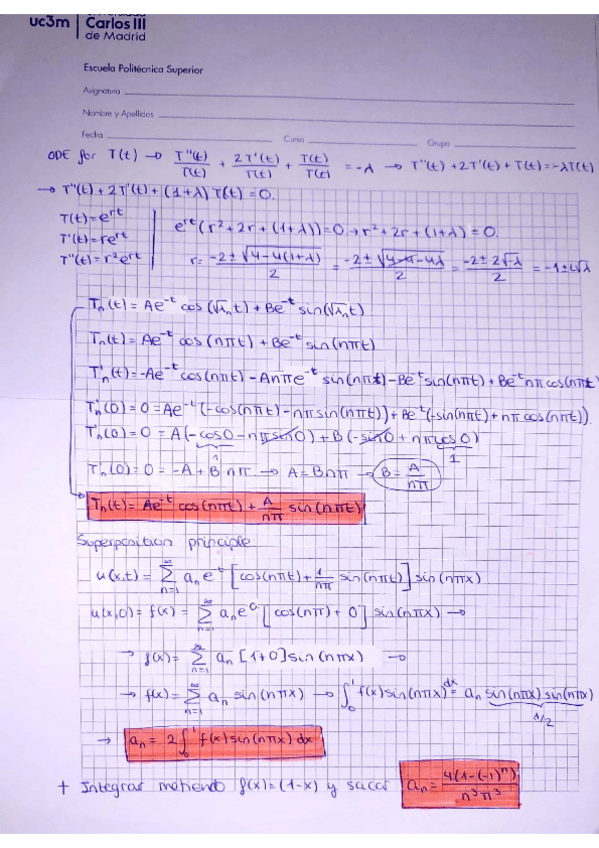 uc3m | Carlos III
de Madrid
Escuela Politécnica Superior
Asignatura
Nombre y Apellidos
Fecha Curso Grupo
ODE for T(t) → T''(t)/T(t) + 2T'(t)/T(t) + T(t)/T(t) = -λ → T''(t) + 2T'(t) + T(t) = -λT(t)
→ T''(t) + 2T'(t) + (1+λ) T(t) = 0.
T(t) = e^rt
T'(t) = re^rt
T''(t) = r²e^rt
e^rt (r² + 2r + (1+λ)) = 0 → r² + 2r + (1+λ) = 0.
r = (-2 ± √(4-4(1+λ)))/2 = (-2 ± √(4-4-4λ))/2 = (-2 ± 2√-λ)/2 = -1 ± i√λ
Tn(t) = Ae^-t cos(√λn t) + Be^-t sin(√λn t)
Tn(t) = Ae^-t cos(nπt) + Be^-t sin(nπt)
T'n(t) = -Ae^-t cos(nπt) - Anπe^-t sin(nπt) - Be^-t sin(nπt) + Be^-t nπ cos(nπt)
T'n(0) = 0 = Ae^-t (-cos(nπt) - nπ sin(nπt)) + Be^-t (-sin(nπt) + nπ cos(nπt)).
T'n(0) = 0 = A(-cos0 - nπ sin0) + B(-sin0 + nπ cos0)
1 1
T'n(0) = 0 = -A + B nπ → A = Bnπ → B = A/nπ
Tn(t) = Ae^-t cos(nπt) + A/nπ sin(nπt)
Superposition principle
u(x,t) = ∑_{n=1}^∞ an e^-t [cos(nπt) + 1/nπ sin(nπt)] sin(nπx)
u(x,0) = f(x) = ∑_{n=1}^∞ an e^0 [cos(nπ) + 0] sin(nπx) →
→ f(x) = ∑_{n=1}^∞ an [1+0] sin(nπx) →
→ f(x) = ∑_{n=1}^∞ an sin(nπx) → ∫_0^1 f(x) sin(nπx) dx = an sin(nπx) sin(nπx)
1/2
→ an = 2∫_0^1 f(x) sin(nπx) dx
+ Integrar metiendo f(x) = (1-x) y sacar an = 4(1-(-1)^n)/n³π³